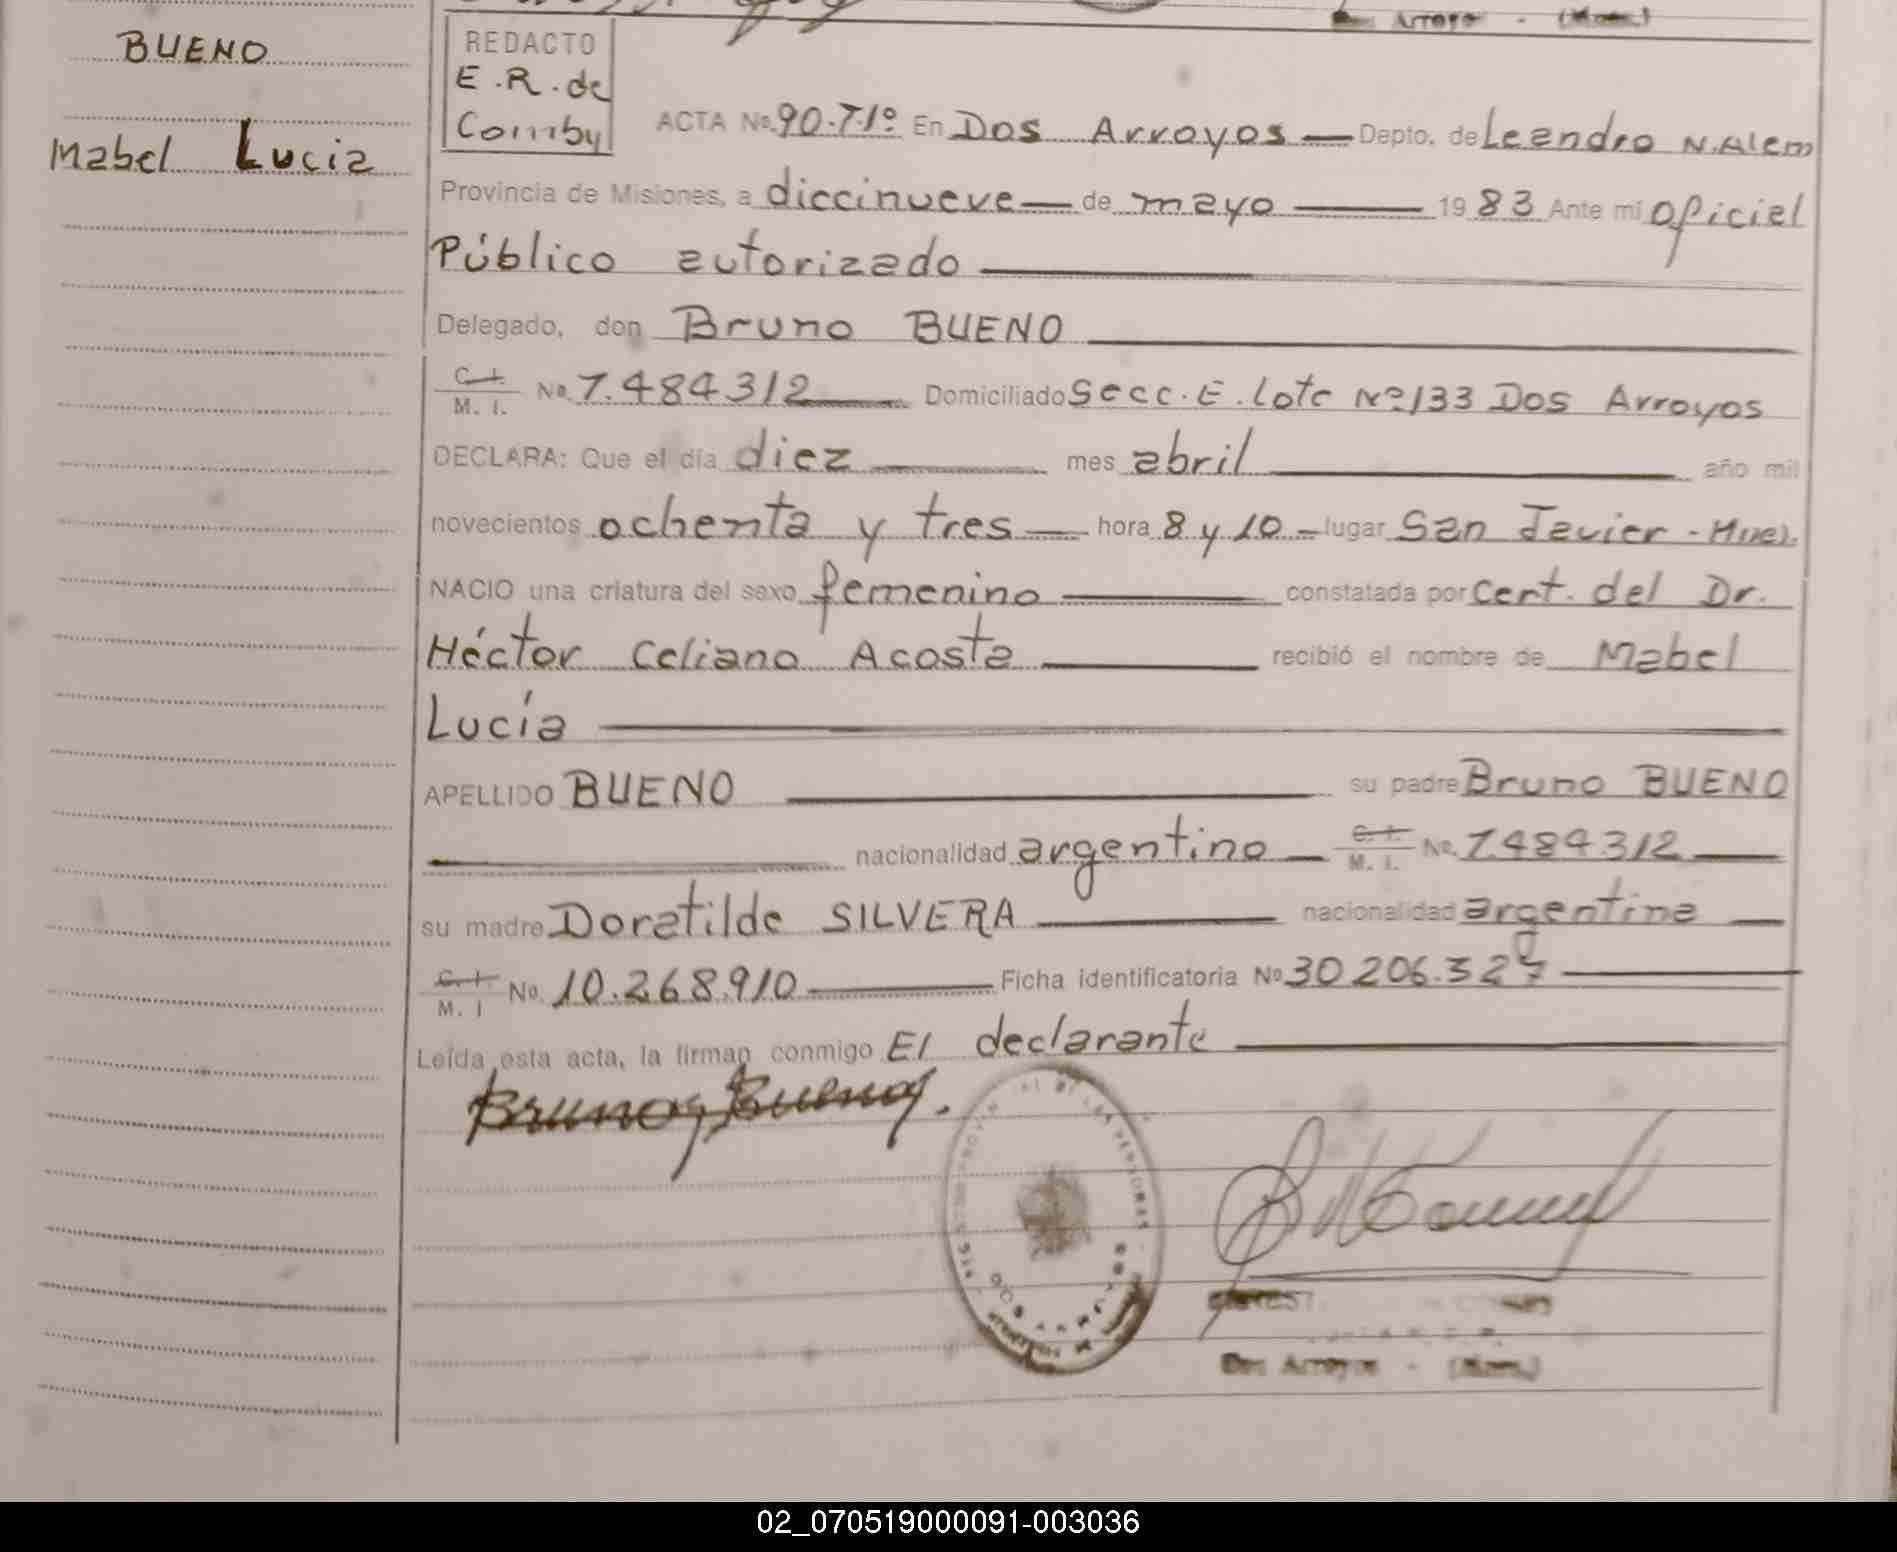 Arroyo - (Mnes.)
BUENO
Mabel Lucia
REDACTO
E.R. de
Comby
ACTA No. 90-T-1º En Dos Arroyos — Depto. de Leandro N. Alem
Provincia de Misiones, a diecinueve — de mayo — 1983 Ante mí Oficial
Público autorizado
Delegado, don Bruno BUENO
C.I. / M. I. No. 7.484312 Domiciliado Secc. E. Lote Nº 133 Dos Arroyos
DECLARA: Que el día diez mes abril año mil
novecientos ochenta y tres — hora 8 y 10 — lugar San Javier - Mnes.
NACIO una criatura del sexo femenino constatada por Cert. del Dr.
Héctor Celiano Acosta recibió el nombre de Mabel
Lucía
APELLIDO BUENO su padre Bruno BUENO
nacionalidad argentino — C.I. / M. I. No. 7.484312
su madre Doratilde SILVERA nacionalidad argentina —
C.I. / M. I No. 10.268.910 Ficha identificatoria Nº 30 206.329
Leída esta acta, la firman conmigo El declarante
Bruno Bueno.
DOS ARROYOS
Dos Arroyos - (Mnes.)
02_070519000091-003036